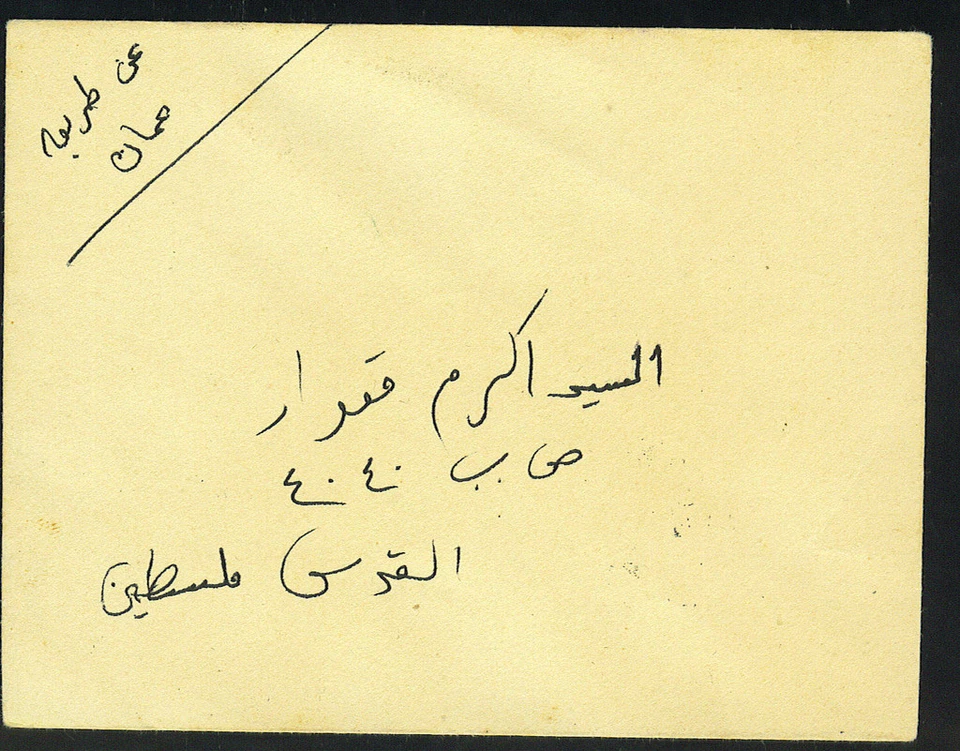 عن طريق
عمان
السيد اكرم قعوار
ص ب ٤٠٤٠
القدس فلسطين